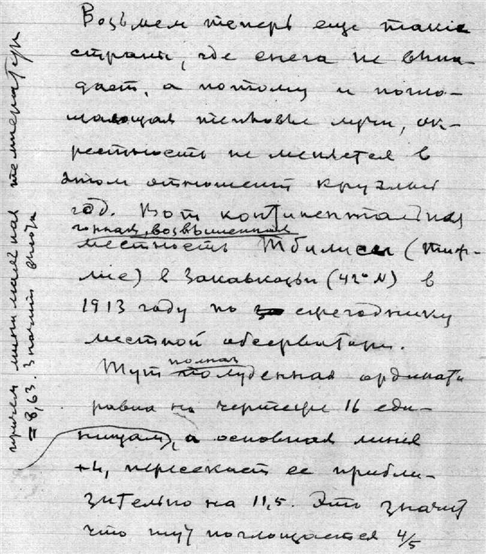 Возьмем теперь еще такие
страны, где снега не выпа-
дает, а потому и погло-
щающая тепловые лучи, ок-
рестность не меняется в
этом отношении круглый
год. Вот континентальная
горная, возвышенная
местность Тбилиси (Тиф-
лис) в Закавказьи (42° N) в
1913 году по ежегоднику
местной обсерватории.
Тут полная полуденная ордината
равна на чертеже 16 еди-
ницам, а основная линия
+4, пересекает ее прибли-
зительно на 11,5. Это значит
что тут поглощается 4/5
причем минимальная температура
= 8,63. Значит